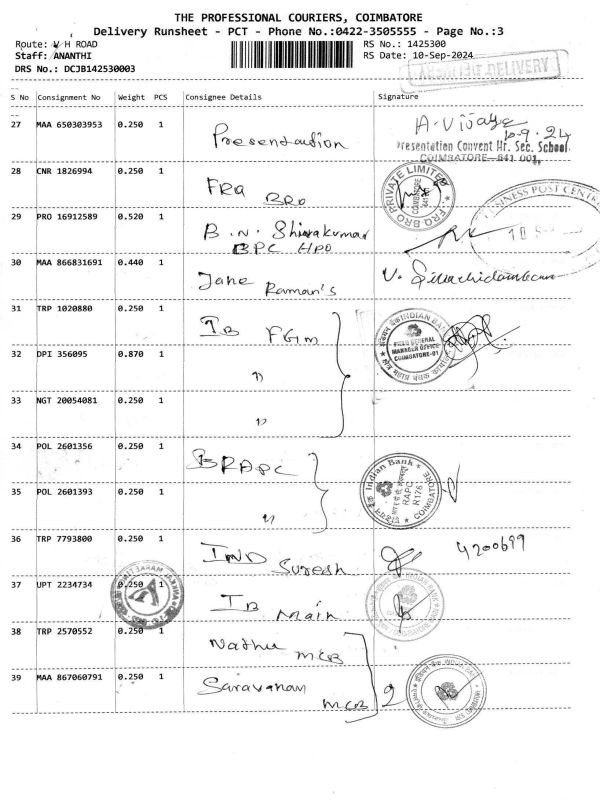 THE PROFESSIONAL COURIERS, COIMBATORE
Delivery Runsheet - PCT - Phone No.:0422-3505555 - Page No.:3
Route: W H ROAD
RS No.: 1425300
Staff: ANANTHI
RS Date: 10-Sep-2024
DRS No.: DCJB142530003
DELIVERY
S No Consignment No Weight PCS Consignee Details Signature
27 MAA 650303953 0.250 1 Presentation A. Vijaya
10.9.24
Presentation Convent Hr. Sec. School
COIMBATORE-641 001.
28 CNR 1826994 0.250 1 FRA BRO
FRA BRO PRIVATE LIMITED
COIMBATORE
29 PRO 16912589 0.520 1 B.N. Shivakumar
BPC HPO
BUSINESS POST CENTRE
30 MAA 866831691 0.440 1 Jane Raman's
31 TRP 1020880 0.250 1 IB FGM
INDIAN BANK
FIELD GENERAL
MANAGER OFFICE
COIMBATORE-01
32 DPI 356095 0.870 1 "
33 NGT 20054081 0.250 1 "
34 POL 2601356 0.250 1 BRAPC
Indian Bank
RAPC
R176
COIMBATORE
35 POL 2601393 0.250 1 "
36 TRP 7793800 0.250 1 IND Suresh 4200699
37 UPT 2234734 0.250 1 IB Main
38 TRP 2570552 0.250 1 Nathu MCB
39 MAA 867060791 0.250 1 Saravanan MCB 2